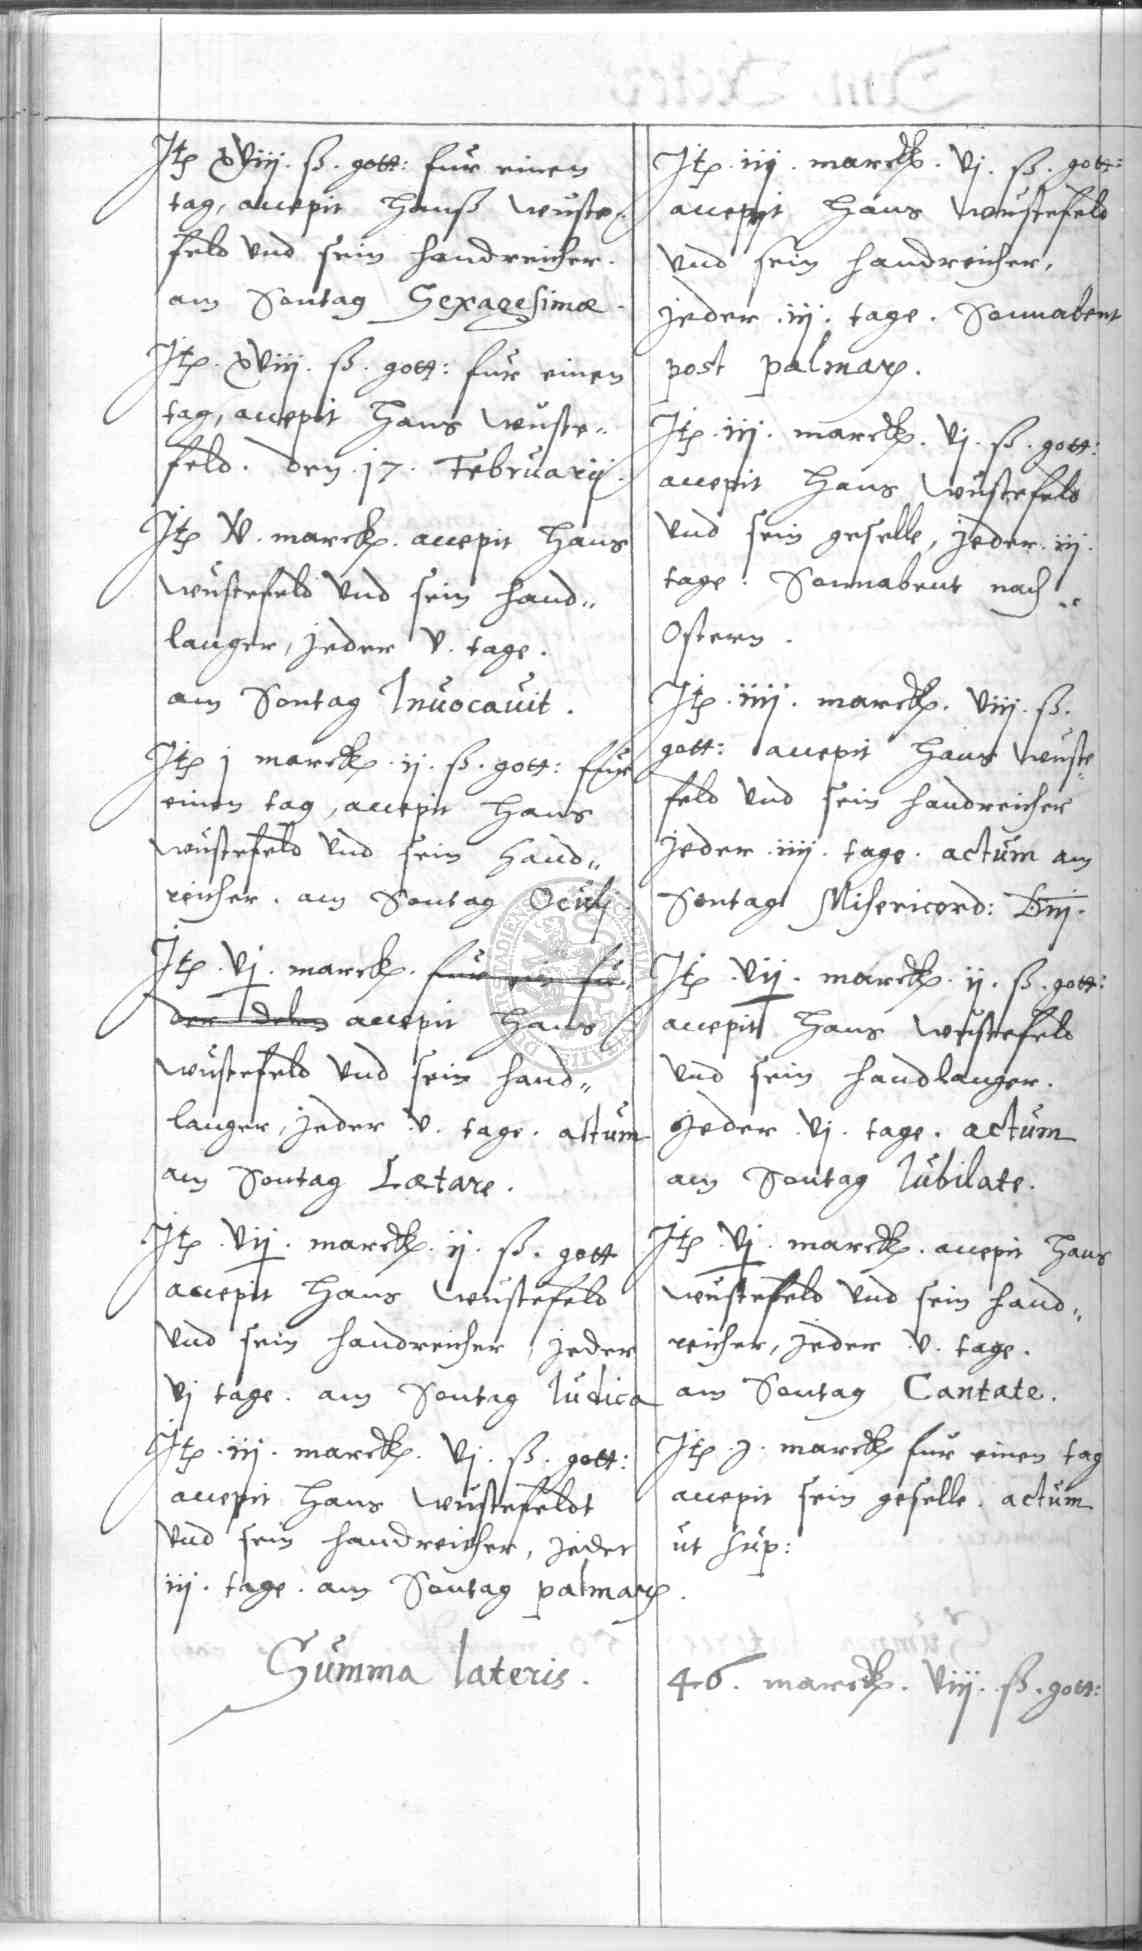 Jtẽ xviij. ß. gott: fur einen
tag, accepit Hanß wuste,,
feld vnd sein handreicher.
am Sontag Sexagesimæ.
Jtẽ. xviij. ß. gott: fur einen
tag, accepit Hans wuste,,
feld. den .17. Februarij.
Jtẽ v. marck. accepit Hans
wustefeld vnd sein hand,,
langer, jeder v. tage.
am Sontag Invocavit.
Jtẽ j marck. ij. ß. gott: fur
einen tag, accepit Hans
wustefeld vnd sein Hand,,
reicher. am Sontag Oculj.
Jtẽ. vj. marck. fur
accepit Hans
wustefeld vnd sein hand,,
langer, jeder v. tage. actum
am Sontag Lætare.
Jtẽ. vij. marck. ij. ß. gott
accepit Hans wustefeld
vnd sein handreicher, jeder
vj tage. am Sontag Iudica
Jtẽ. iij. marck. vj. ß. gott:
accepit Hans wustefeldt
vnd sein handreicher, jeder
iij. tage. am Sontag palmarũ.
Jtẽ. iij. marck. vj. ß. gott:
accepit Hans wustefeld
vnd sein handreicher,
jeder .iij. tage. Sonnabent
post palmarũ.
Jtẽ. iij. marck. vj. ß. gott:
accepit Hans wustefeld
vnd sein geselle, jeder .iij.
tage. Sonnabent nach
Ostern.
Jtẽ. iiij. marck. viij. ß.
gott: accepit Hans wuste,,
feld vnd sein handreicher
jeder .iiij. tage. actum am
Sontag Misericord: Dnj.
Jtẽ. vij. marck. ij. ß. gott:
accepit Hans wustefeld
vnd sein handlanger.
Jeder .vj. tage. actum
am Sontag Iubilate.
Jtẽ. vj. marck. accepit Hans
wustefeld vnd sein hand,,
reicher, jeder v. tage.
am Sontag Cantate.
Jtẽ. j. marck fur einen tag
accepit sein geselle. actum
ut sup:
Summa lateris.
46. marck. viij. ß. gott: